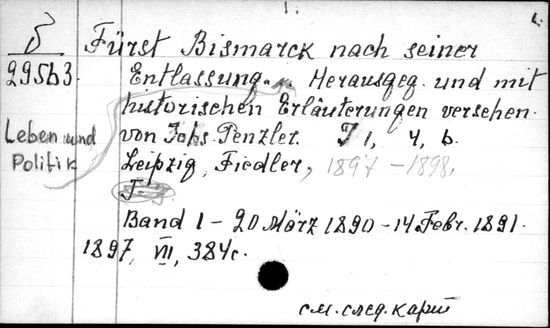 1.
δ
29563.
Fürst Bismarck nach seiner
Entlassung. Herausgeg. und mit
historischen Erläuterungen versehen.
von Johs. Penzler. I 1, 4, 6.
Leben und
Politik
Leipzig, Fiedler, 1897-1898.
Band 1 - 20 März 1890 - 14 Febr. 1891.
1897, VII, 384 с.
см. след. карт